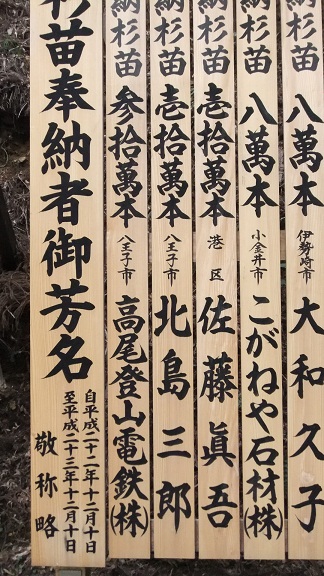 納杉苗 八萬本 伊勢崎市 大和久子
納杉苗 八萬本 小金井市 こがねや石材㈱
納杉苗 壱拾萬本 港区 佐藤眞吾
納杉苗 壱拾萬本 八王子市 北島三郎
納杉苗 参拾萬本 八王子市 高尾登山電鉄㈱
杉苗奉納者御芳名
自平成二十二年十二月十日
至平成二十三年十二月十日
敬称略